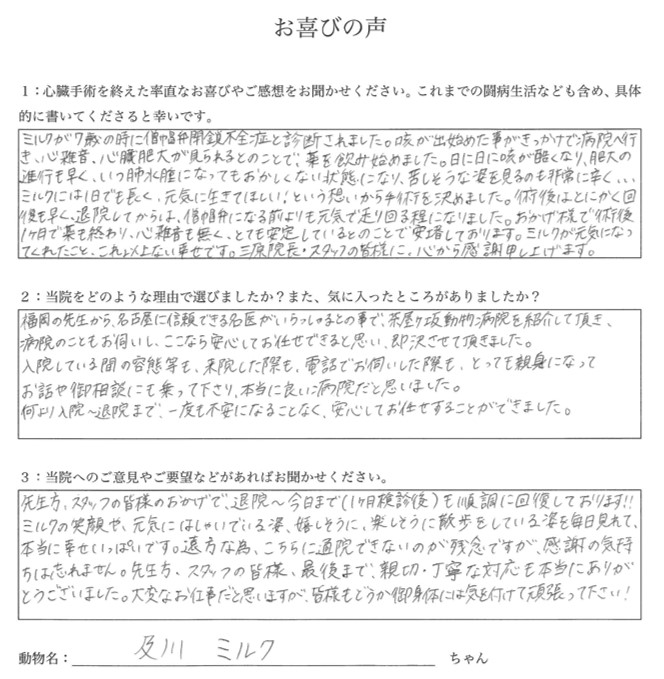 お喜びの声
1：心臓手術を終えた率直なお喜びやご感想をお聞かせください。これまでの闘病生活なども含め、具体
的に書いてくださると幸いです。
ミルクが7歳の時に僧帽弁閉鎖不全症と診断されました。咳が出始めた事がきっかけで病院へ行
き、心雑音、心臓肥大が見られるとのことで、薬を飲み始めました。日に日に咳が酷くなり、肥大の
進行も早く、いつ肺水腫になってもおかしくない状態になり、苦しそうな姿を見るのも非常に辛く、、、
ミルクには1日でも長く、元気に生きてほしい！という想いから手術を決めました。術後はとにかく回
復も早く、退院してからは、僧帽弁になる前よりも元気で走り回る程になりました。おかげ様で術後
1ヶ月で薬も終わり、心雑音も無く、とても安定しているとのことで安堵しております。ミルクが元気になっ
てくれたこと、これ以上ない幸せです。三原院長・スタッフの皆様に、心から感謝申し上げます。
2：当院をどのような理由で選びましたか？また、気に入ったところがありましたか？
福岡の先生から、名古屋に信頼できる名医がいらっしゃるとの事で、茶屋ヶ坂動物病院を紹介して頂き、
病院のこともお伺いし、ここなら安心してお任せできると思い、即決させて頂きました。
入院している間の容態等も、来院した際も、電話でお伺いした際も、とっても親身になって
お話や御相談にも乗って下さり、本当に良い病院だと思いました。
何より入院～退院まで、一度も不安になることなく、安心してお任せすることができました。
3：当院へのご意見やご要望などがあればお聞かせください。
先生方、スタッフの皆様のおかげで、退院～今日まで(1ヶ月検診後)も順調に回復しております!!
ミルクの笑顔や、元気にはしゃいでいる姿、嬉しそうに、楽しそうに散歩をしている姿を毎日見れて、
本当に幸せいっぱいです。遠方な為、こちらに通院できないのが残念ですが、感謝の気持
ちは忘れません。先生方、スタッフの皆様、最後まで、親切・丁寧な対応も本当にありが
とうございました。大変なお仕事だと思いますが、皆様もどうか御身体には気を付けて頑張って下さい！
動物名： 及川 ミルク ちゃん